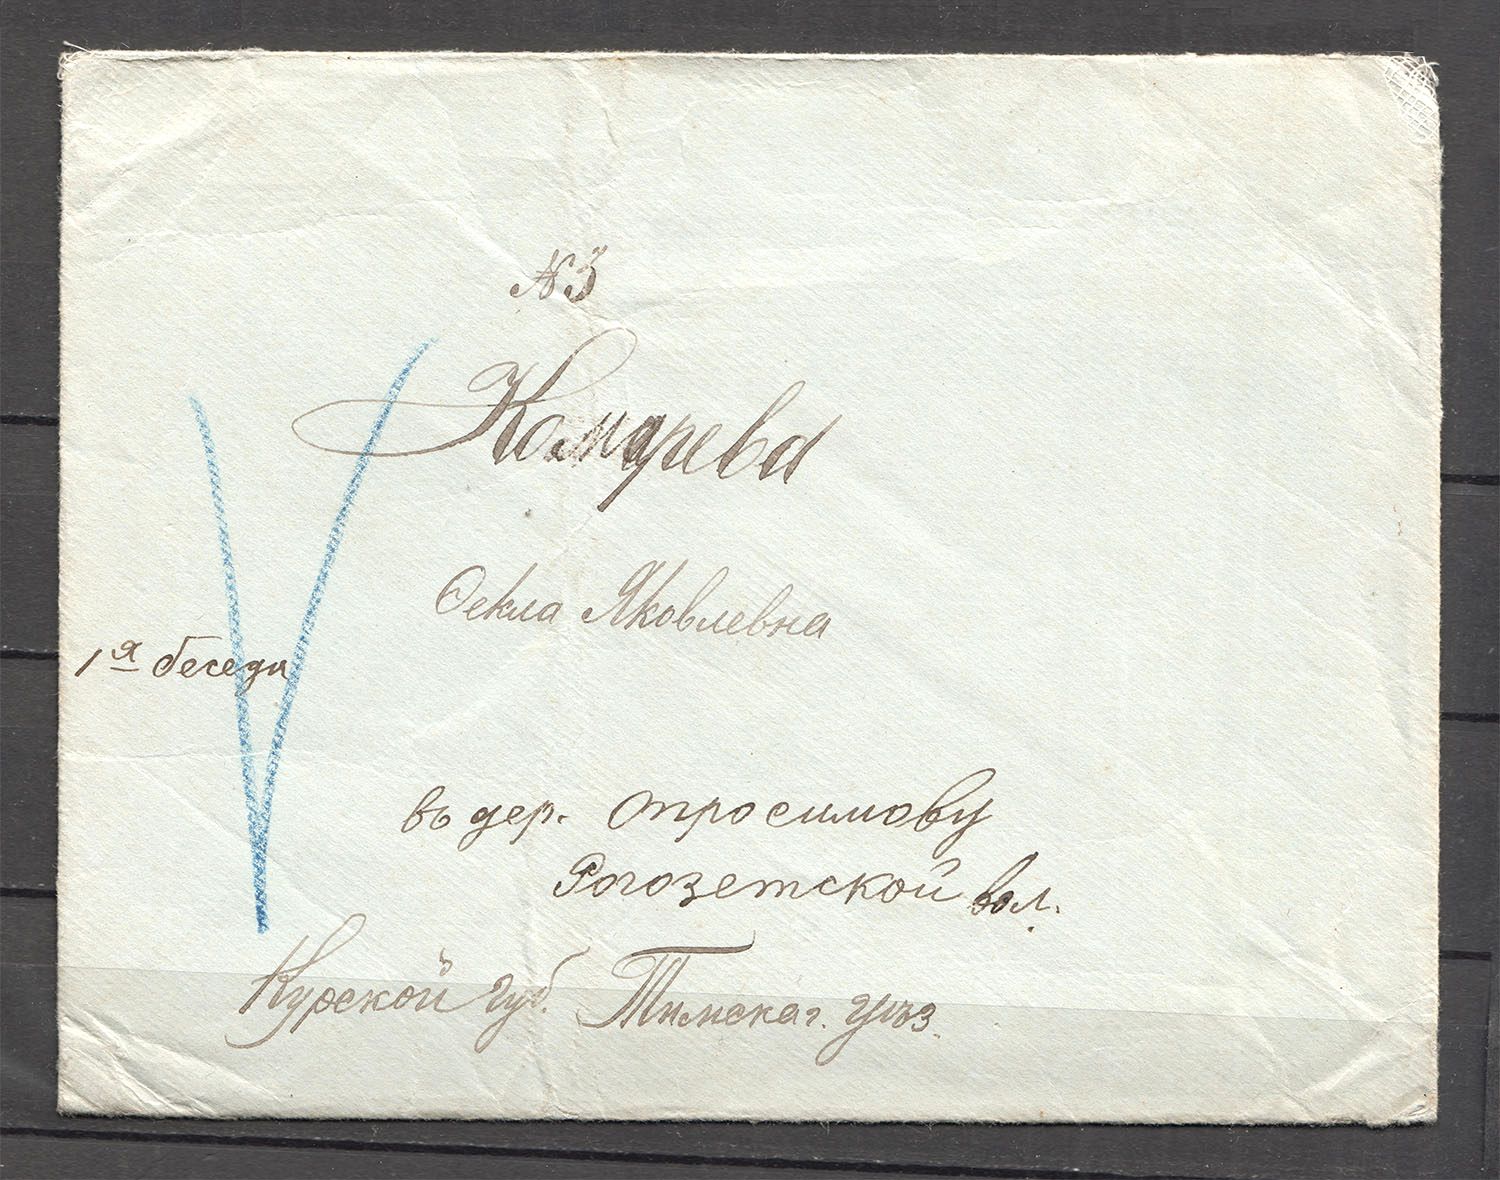 №3
Комарева
Ѳекла Яковлевна
1я беседа
въ дер. Отросимову
Рогозетской вол.
Курской губ. Тимскаг. уѣз.